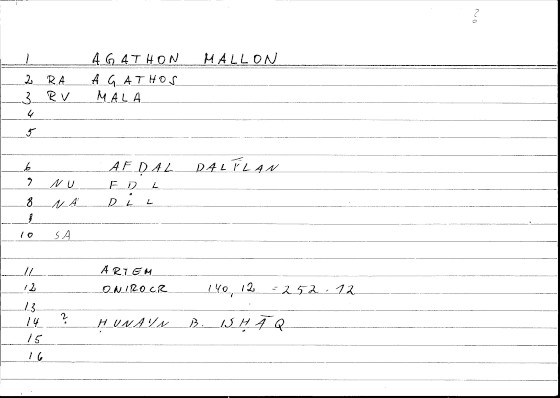 ?
1 AGATHON MALLON
2 RA AGATHOS
3 RV MALA
4
5
6 AFḌAL DALĪLAN
7 NU FḌL
8 NA DLL
9
10 SA
11 ARTEM
12 ONIROCR 140,12 = 252.12
13
14 ? ḤUNAYN B. ISḤĀQ
15
16